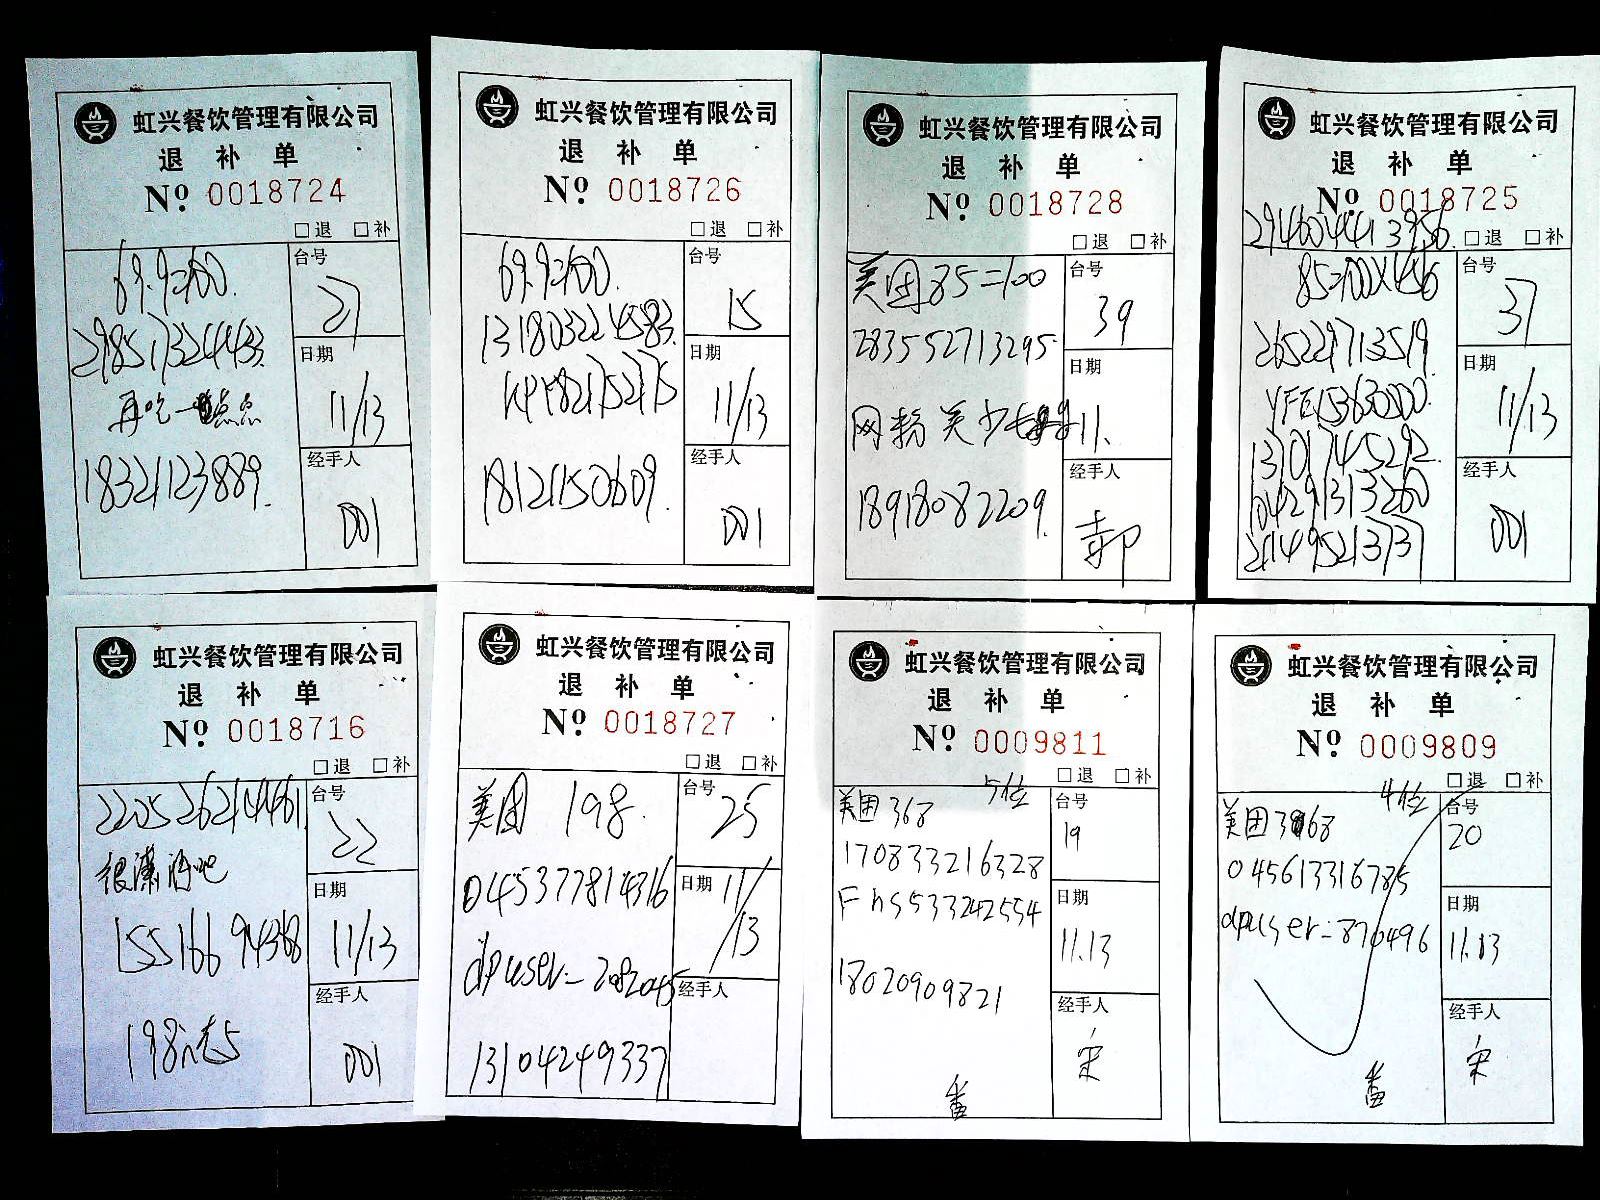 虹兴餐饮管理有限公司
退 补 单
Nº 0018724
□退 □补
69.9=100.
台号
27
298517324433.
日期
11/13
再吃一点点
18321123889.
经手人
001
虹兴餐饮管理有限公司
退 补 单
Nº 0018726
□退 □补
69.9=100.
台号
15
131803224583.
日期
11/13
18121150609.
经手人
001
虹兴餐饮管理有限公司
退 补 单
Nº 0018728
□退 □补
美团 85=100
台号
39
283552713295.
日期
11.
网 美少
18918082209.
经手人
虹兴餐饮管理有限公司
退 补 单
Nº 0018725
294604413956.
□退 □补
85=100X
台号
37
265229713519.
日期
11/13
13017445292.
104291313260
211495213737
经手人
001
虹兴餐饮管理有限公司
退 补 单
Nº 0018716
□退 □补
台号
22
很潇洒吧
日期
11/13
15516694368
经手人
198
001
虹兴餐饮管理有限公司
退 补 单
Nº 0018727
□退 □补
美团 198.
台号
25
045377814316
日期
11/13
dpuser-2082045
经手人
13104249337
虹兴餐饮管理有限公司
退 补 单
Nº 0009811
□退 □补
5位
美团 368
台号
19
170833216328
Fhs533242554
日期
11.13
18020909821
经手人
宋
虹兴餐饮管理有限公司
退 补 单
Nº 0009809
□退 □补
4位
美团 368
台号
20
045613316785
日期
11.13
dpuser-870496
经手人
宋